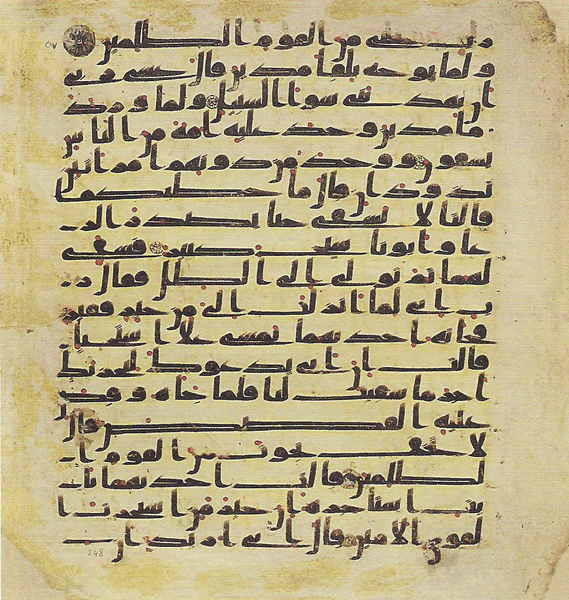 رب نجني من القوم الظلمين
ولما توجه تلقا مدين قال عسى ربي
ان يهديني سوا السبيل ولما ورد
ما مدين وجد عليه امة من الناس
يسقون ووجد من دونهم امراتين
تذودان قال ما خطبكما
قالتا لا نسقي حتى يصدر الر
عا وابونا شيخ كبير فسقى
لهما ثم تولى الى الظل فقال ر
ب اني لما انزلت الي من خير فقير
فجاته احديهما تمشي على استحيا
قالت ان ابي يدعوك ليجزيك
اجر ما سقيت لنا فلما جاه وقص
عليه القصص قال
لا تخف نجوت من القوم ا
لظلمين قالت احديهما يا
بت استجره ان خير من استجرت ا
لقوي الامين قال اني اريد ان
248